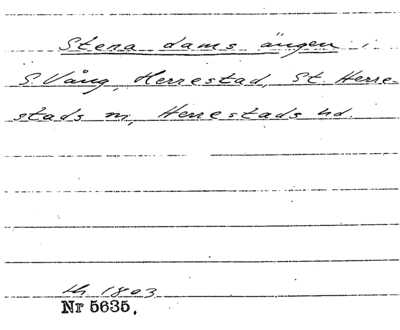 Stena dams ängen i
S. Vång, Herrestad, St. Herre-
stads sn, Herrestads hd.
lh 1803
Nr 5635.